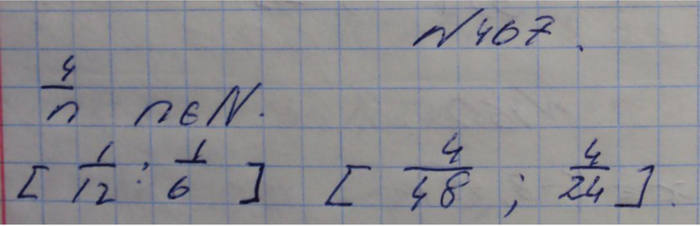 №467.
4/n n∈N.
[1/12; 1/6] [4/48; 4/24].